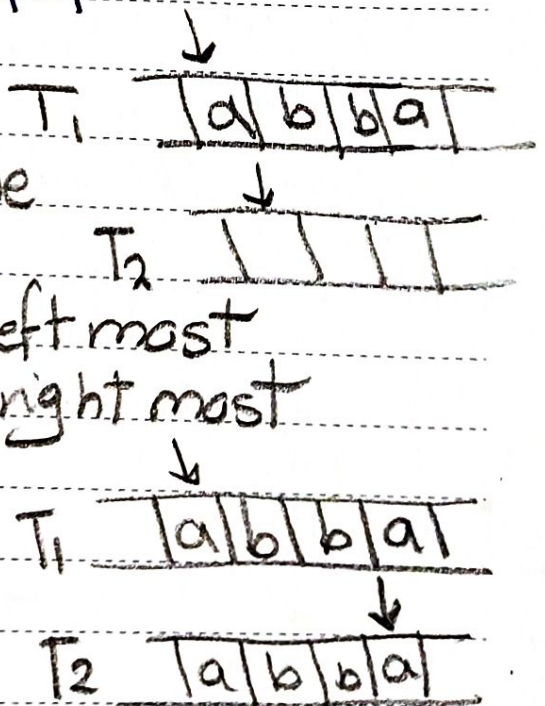 T₁ a b b a
e
T₂
eft most
right most
T₁ a b b a
T₂ a b b a